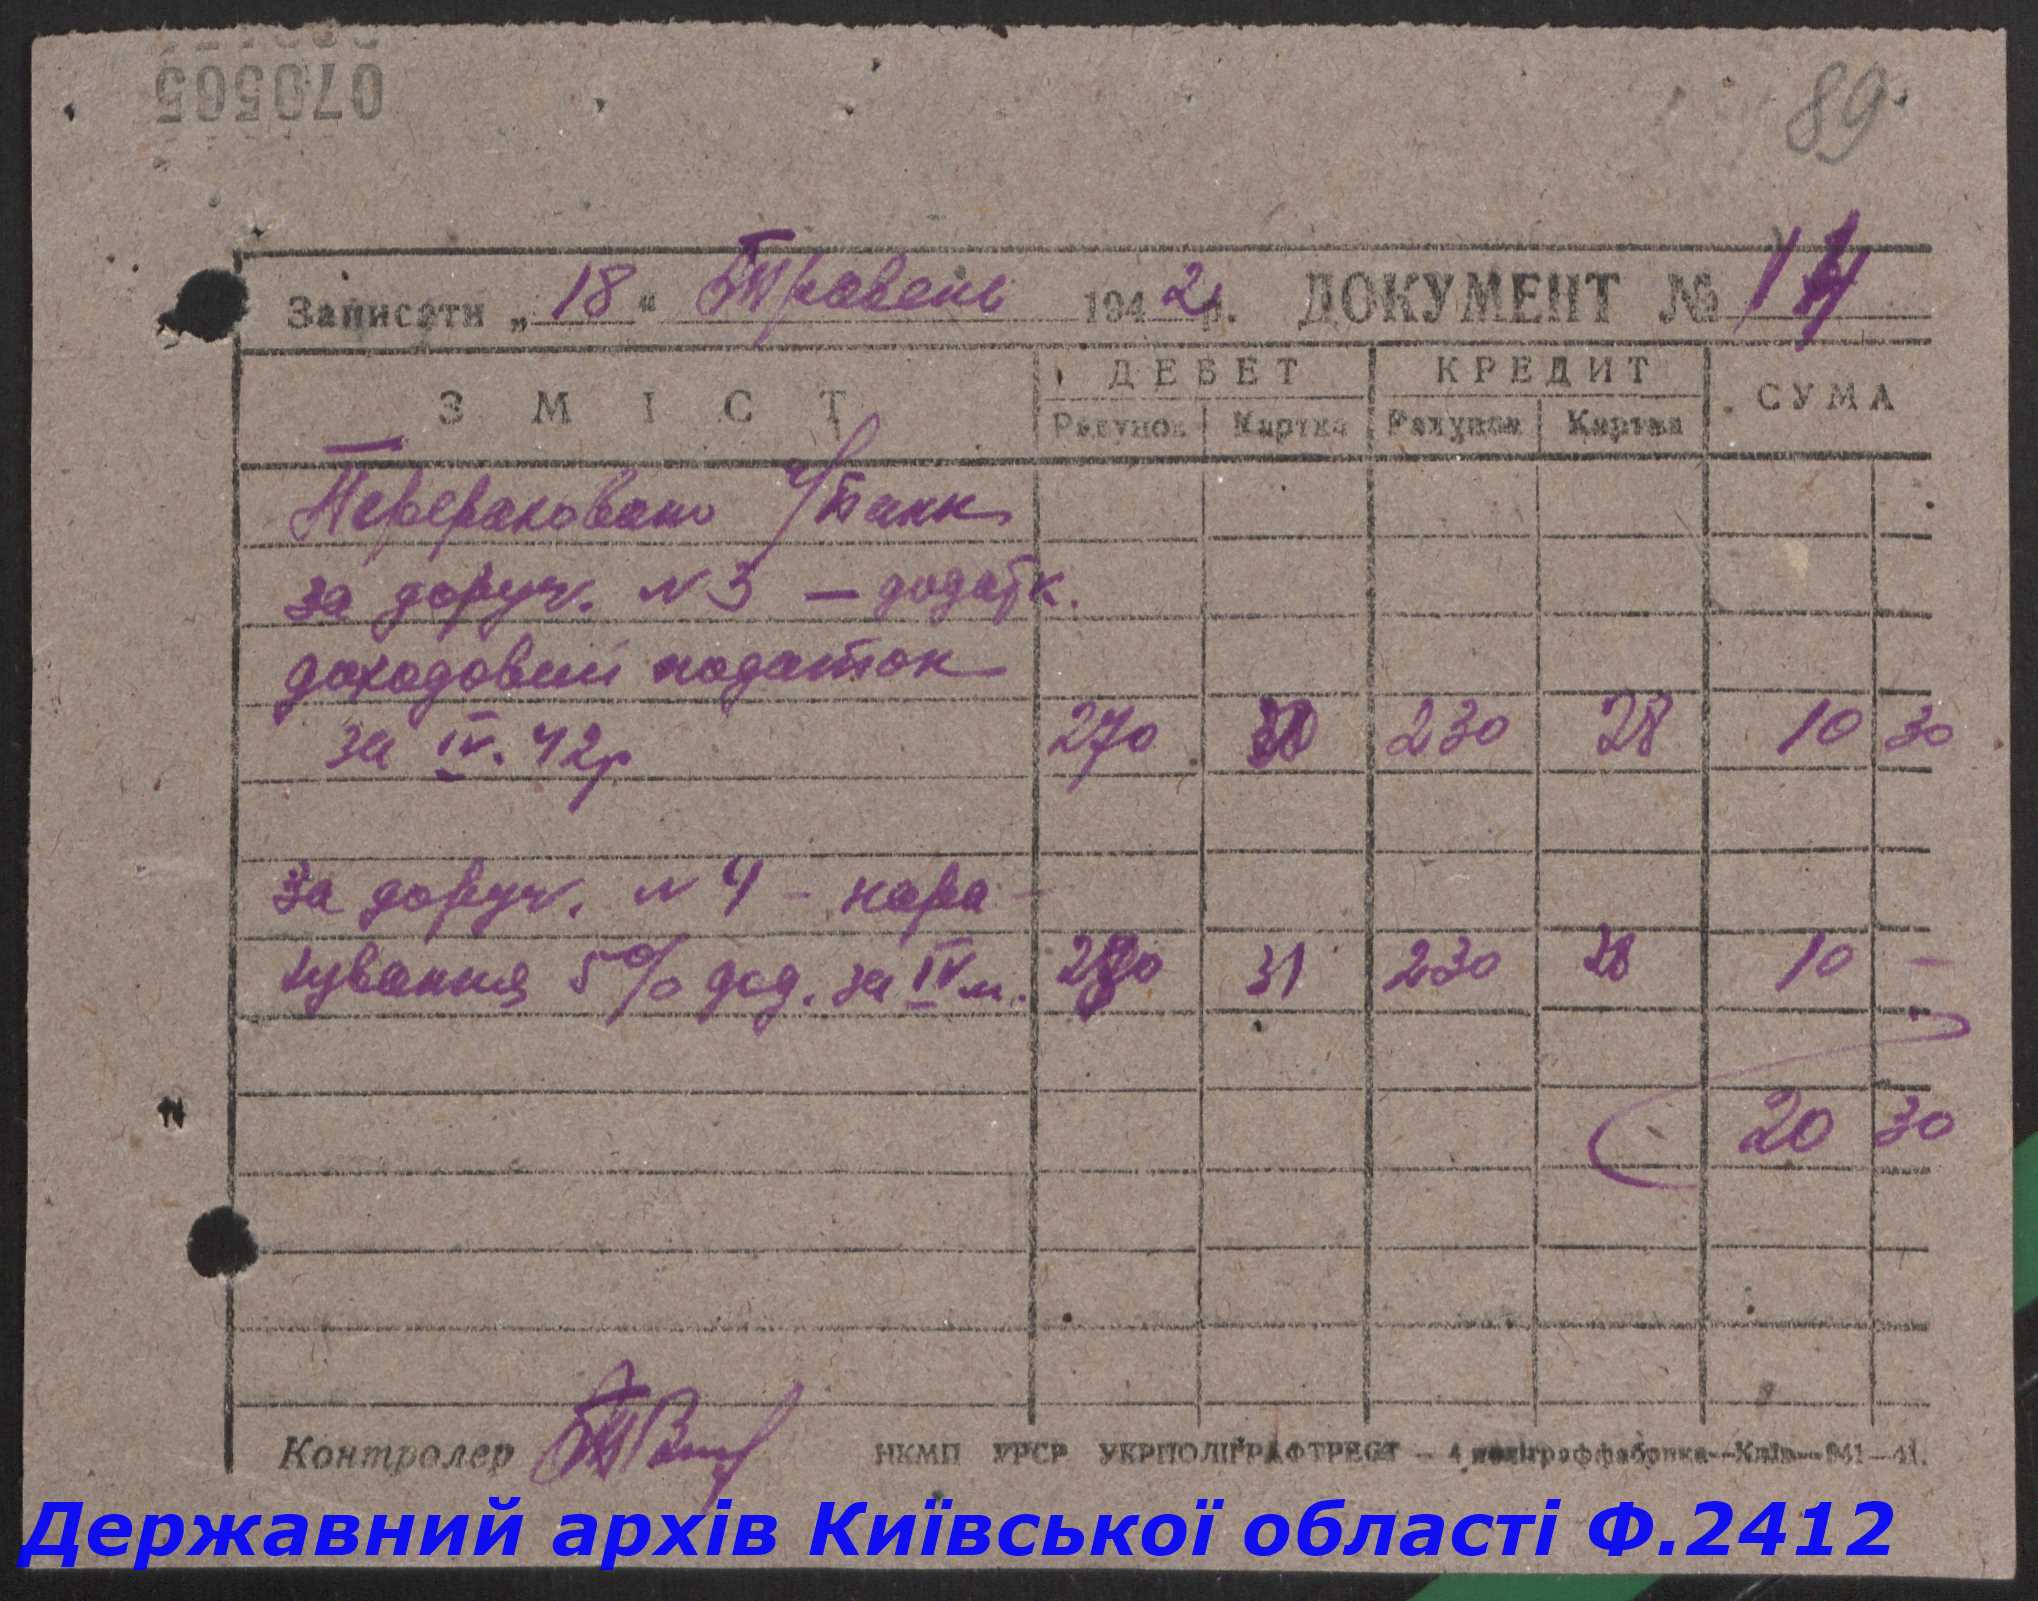 070505
89
Записати „ 18 “ Травень 1942 р. ДОКУМЕНТ №
ЗМІСТ ДЕБЕТ КРЕДИТ СУМА
Рахунок Картка Рахунок Картка
Перераховано ч/банк
за доруч. N 3 — додатк.
доходовий податок
за IV. 42р 270 230 28 10 30
за доруч. N 4 - нара-
хування 5% дод. за IV м. 31 230 28 10 -
20 30
Контролер
НКМП УРСР УКРПОЛІГРАФТРЕСТ — 4 поліграффабрика—Київ—941—41.
Державний архів Київської області Ф.2412